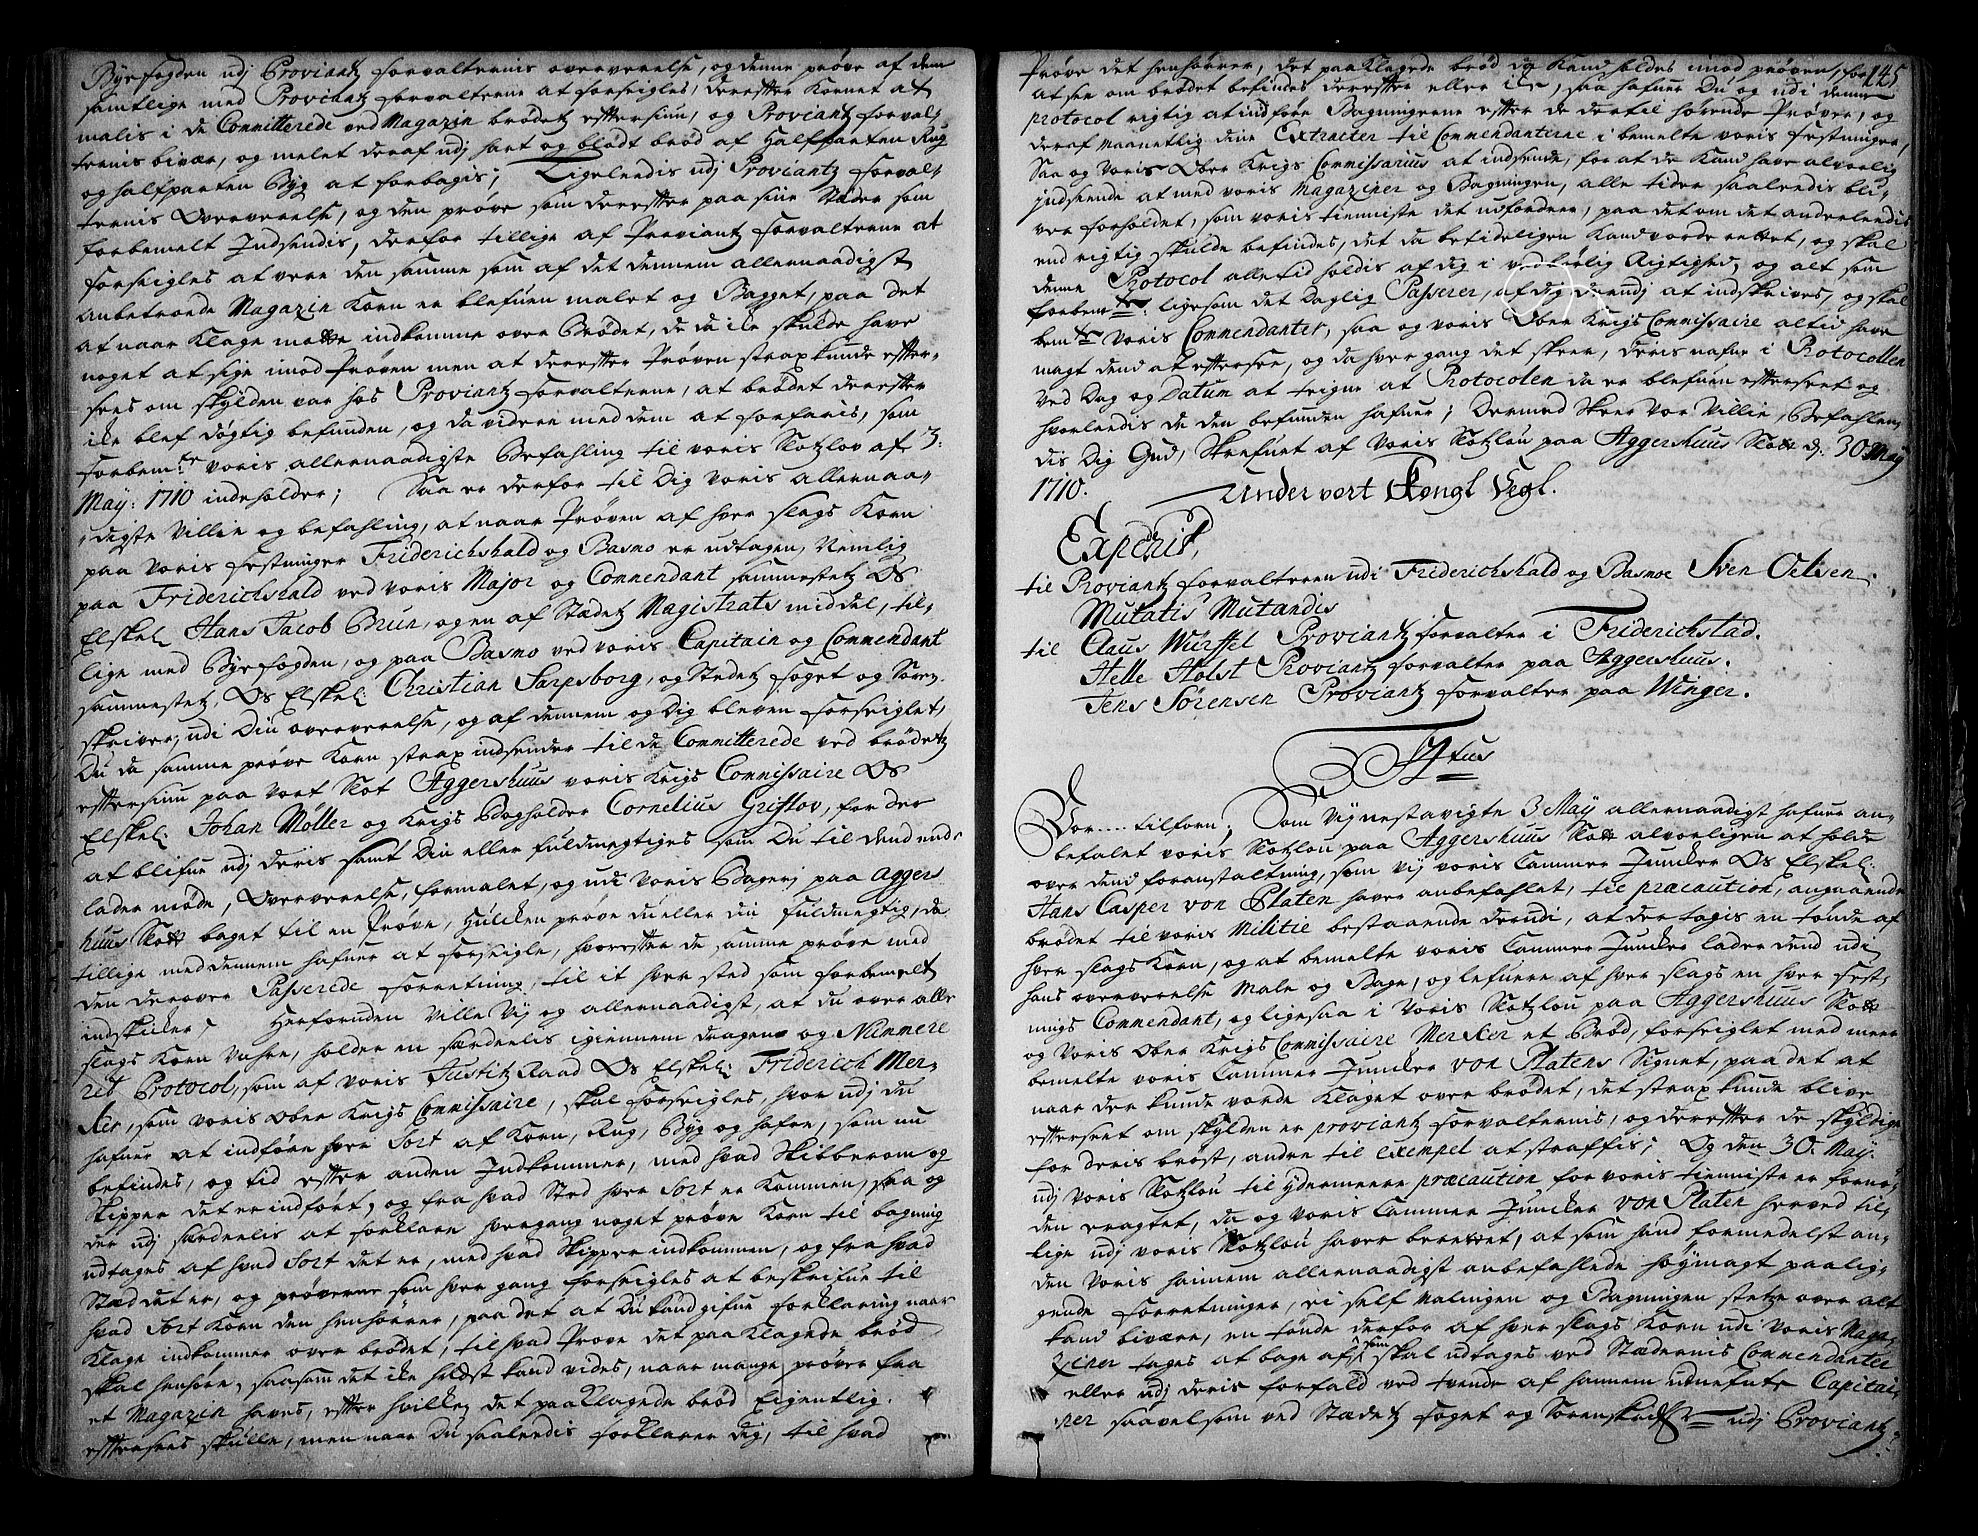 Byefogden udj Proviantz forvalternis oververelse, og denne prøve af dem
samtlige med Proviantz forvalterne at forseigles, derefter Kornet at
malis i de Committerede ved Magazin brødetz eftersiun, og Proviantz forval-
ternis bivær, og melet deraf udj hart og blødt brød af Halfparten Rug
og halfparten Byg at forbagis; Ligeleedis udj Proviantz forval-
ternis Oververelse, og den prøve som derefter paa sine Stæder som
forbemelt Indsendis, derfor tillige af Proviantz forvalterne at
forseigles at vere den samme som af det dennem allernaadigst
anbetroede Magazin Korn er blefuen malet og Bagget, paa det
at naar Klage motte indkomme over Brødet, de da ike skulde have
noget at sige imod Prøven men at derefter Prøven strax kunde efter-
sees om skylden var hos Proviantz forvalterne, at brødet derefter
ike blef døgtig befunden, og da videre med dem at forfaris, som
forbem:te voris allernaadigste Befahling til voris Slotzlov af 3:
May: 1710 indeholder; Saa er derfor til Dig voris allernaa-
digste Villie og befahling, at naar Prøven af hver slags Korn
paa voris festninger Friderichshald og Basmo er udtagen, Nemlig
paa Friderichshald ved voris Major og Commendant sammestetz Os
Elskel: Hans Jacob Brun, og en af Stædetz Magistrats middel, til-
lige med Byefogden, og paa Basmo ved voris Capitain og Commendant
sammestetz, Os Elskel: Christian Sarpsborg, og Stedetz foget og Soren-
skriver, udi Din oververelse, og af dennem og Dig bleven forseiglet,
Du da samme prøve Korn strax indsender til de Committerede ved brødetz
eftersiun paa vort Slot Aggershuus voris Krigs Commissaire Os
Elskel: Johan Møller og Krigs Bogholder Cornelius Grislov, for der
at blifue udj deris samt Din eller fuldmegtiges som Du til dend ende
lader møde, Oververelse, formalet, og udi voris Bagerj paa Aggers
huus Slott baget til en Prøve, Hvilcken prøve du eller din fuldmegtig, da
tillige med dennem hafuer at forseigle, hvorefter de samme prøve med
den derover Passerede forretning, til it hver sted som forbemelt
indskicker; Herforuden Ville Vij og allernaadigst, at du over alle
slags Korn Vahre, holder en særdeelis igiennem dragen og Nummere
ret Protocol, som af voris Justitz Raad Os Elskel: Friderich Mer-
ker, som voris Ober Krigs Commissaire, skal forseigles, hvor udj du
hafuer at indføre hver Sort af Korn, Rug, Byg og hafre, som nu
befindes, og tid efter anden Indkommer, med hvad Skibberom og
Skipper det er indført, og fra hvad Sted hver Sort er Kommen, saa og
der udj særdeelis at forklare hvergang noget prøve Korn til bagning
udtages af hvad Sort det er, med hvad Skipper indkommen, og fra hvad
Stæd det er, og prøverne som hver gang forseigles at beskrifue til
hvad Sort Korn den henhører, paa det at Du kand gifue forklaring naar
Klage indkommer over brødet, til hvad Prøve det paaklagede brød
skal henhøre, saasom det ike heldst kand vides, naar mange prøver fra
et Magazin haves, efter hvilken det paaklagede brød Eigentlig
eftersees skulle, men naar Du saaleedis forklarer dig, til hvad
145
Prøve det henhører, det paaklagede brød og Kand holdes imod prøven, for
at see om brødet befindes derefter eller ike, saa hafuer Du og udi denne
protocol rigtig at indføre Bagningerne efter de dertil hørende Prøver, og
deraf Maanetlig dine Extracter til Commendanterne i bemelte voris festninger,
Saa og Voris Ober Krigs Commissarius at indsende, for at de Kand have alvorlig
jndseende at med voris Magaziner og Bagningen, alle tider saaleedis bli-
ver forholdet, som voris tienniste det udfordrer, paa det om det anderleedis
end rigtig skulde befindes, det da betideligen Kand vorde rettet, og skal
denne Protocol alletid holdis af dig i vedbørlig Rigtighed, og alt som
forbem:te ligesom det Daglig Passerer, af dig derudj at indskrives, og skal
bem:te Voris Commendanter, saa og voris Ober Krigs Commissaire altid have
magt dend at eftersee, og da hver gang det skeer, deris nafne i Protocollen
ved Dag og Datum at teigne at Protocolen da er blefuen efterseet og
hvorleedis de den befunden hafuer; Dermed Skeer Vor Villie, Befahlen-
dis Dig Gud, Skrefuet af Voris Slotzlou paa Aggershuus Slott d: 30 May
1710. Under vort Kongl Segl.
Exped:rit,
til Proviantz forvalteren udi Friderichshald og Basmoe Sven Oelsen.
Mutatis Mutandis
til Claus Würffel Proviantz forvalter i Friderichstad.
Helle Holst Proviantz forvalter paa Aggershuus.
Jens Sørensen Proviantz forvalter paa Winger.
Vor.... tilforn; Som Vij nestavigte 3 May allernaadigst hafuer an-
befalet voris Slotzlou paa Aggershuus Slott alvorligen at holde
over dend foranstaltning, som vij voris Cammer Juncker Os Elskel:
Hans Casper von Platen haver anbefahlet, til præcaution, angaaende
brødet til voris Militie bestaaende derudi, at der tagis en tønde af
hver slags Korn, og at bemelte voris Cammer Juncker lader dend udi
hans oververelse Male og Bage, og lefuere af hver slags en hver fest-
nings Commendant, og ligesaa i voris Slotzlou paa Aggershuus Slott
og Voris Ober Krigs Commissaire Merker et Brød, forseiglet med meer
bemelte voris Cammer Juncker von Platens Signet, paa det at
naar der kunde vorde Klaget over brødet, det strax kunde blive
efterseet om skylden er proviantz forvalternis, og derefter de skyldige
for deris brøst, andre til exempel at straffis; Og den 30. May
udj Voris Slotzlou til ydermeere præcaution for voris tienniste er fornø-
den eragtet, da og voris Cammer Juncker von Platen herved til-
lige udj voris Slotzlou haver berettet, at som hand formedelst an-
den Voris hannem allernaadigst anbefahlede høymagt paalig-
gende forretninger, ei self Malingen og Bagningen stetze over alt
kand bivære, en tønde derfor af hver slags Korn udi voris Maga-
ziner tages at bage af, som skal udtages ved Stædernis Commendanter
eller udj deris forfald ved tvende af hannem udnefnte Capitai-
ner saavelsom ved Stædetz foget og Sorenskr: udj Proviantz